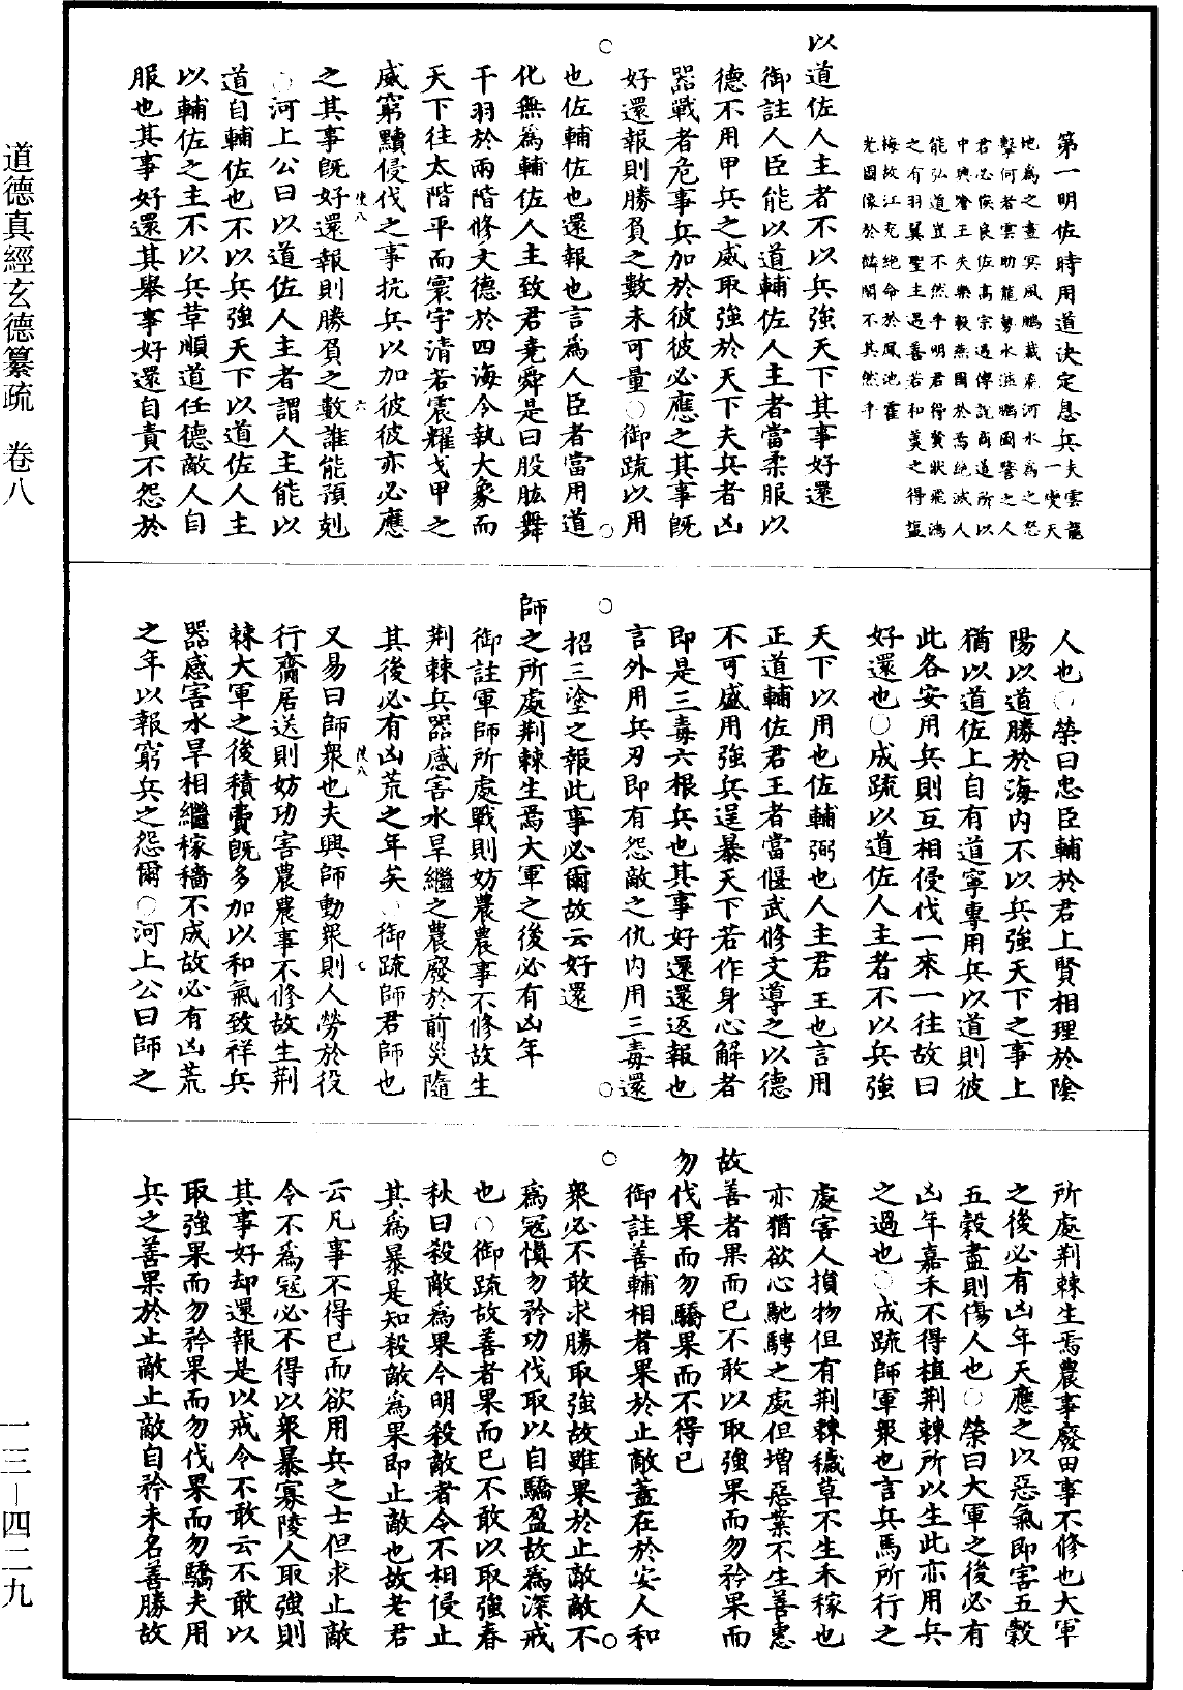 第一明佐時用道決定息兵夫雲龍一變天
地爲之晝冥風鵬載飛河水爲之怒
擊何者雲助龍勢水滋鵬圖譬之人
君必俟良佐高宗遇傅說商道所以
中興譽王失樂毅燕國於焉絕滅人
能弘道豈不然乎明君得賢狀飛鴻
之有羽翼聖主遇善若和羹之得鹽
梅故江充絕命於鳳池霍
光圖像於麟閣不其然乎
以道佐人主者不以兵強天下其事好還
御註人臣能以道輔佐人主者當柔服以
德不用甲兵之威取強於天下夫兵者凶
器戰者危事兵加於彼彼必應之其事旣
好還報則勝負之數未可量○御疏以用
也佐輔佐也還報也言爲人臣者當用道
化無爲輔佐人主致君堯舜是曰股肱舞
干羽於兩階修文德於四海令執大象而
天下往太階平而寰宇清若震耀戈甲之
威窮黷侵伐之事抗兵以加彼彼亦必應
之其事旣好還報則勝負之數誰能預剋
○河上公曰以道佐人主者謂人主能以
道自輔佐也不以兵強天下以道佐人主
以輔佐之主不以兵革順道任德敵人自
服也其事好還其舉事好還自責不怨於
人也○榮曰忠臣輔於君上賢相理於陰
陽以道勝於海內不以兵強天下之事上
猶以道佐上自有道寧專用兵以道則彼
此各安用兵則互相侵伐一來一往故曰
好還也○成疏以道佐人主者不以兵強
天下以用也佐輔弼也人主君王也言用
正道輔佐君王者當偃武修文導之以德
不可盛用強兵逞暴天下若作身心解者
即是三毒六根兵也其事好還還返報也
言外用兵刃即有怨敵之仇內用三毒還
招三塗之報此事必爾故云好還
師之所處荆棘生焉大軍之後必有凶年
御註軍師所處戰則妨農農事不修故生
荆棘兵器感害水旱繼之農廢於前災隨
其後必有凶荒之年矣○御疏師君師也
又易曰師衆也夫興師動衆則人勞於役
行齋居送則妨功害農農事不修故生荆
棘大軍之後積費旣多加以和氣致祥兵
器感害水旱相繼稼穡不成故必有凶荒
之年以報窮兵之怨爾○河上公曰師之
所處荆棘生焉農事廢田事不修也大軍
之後必有凶年天應之以惡氣即害五穀
五穀盡則傷人也○榮曰大軍之後必有
凶年嘉禾不得植荆棘所以生此亦用兵
之過也○成疏師軍衆也言兵馬所行之
處害人損物但有荆棘穢草不生禾稼也
亦猶欲心馳騁之處但增惡業不生善惠
故善者果而已不敢以取強果而勿矜果而
勿伐果而勿驕果而不得已
御註善輔相者果於止敵蓋在於安人和
衆必不敢求勝取強故雖果於止敵敵不
爲寇慎勿矜功伐取以自驕盈故爲深戒
也○御疏故善者果而已不敢以取強春
秋曰殺敵爲果今明殺敵者令不相侵止
其爲暴是知殺敵爲果即止敵也故老君
云凡事不得已而欲用兵之士但求止敵
令不爲寇必不得以衆暴寡陵人取強則
其事好却還報是以戒令不敢云不敢以
取強果而勿矜果而勿伐果而勿驕夫用
兵之善果於止敵止敵自矜未名善勝故
道德真經玄德纂疏　卷八
一三—四二九